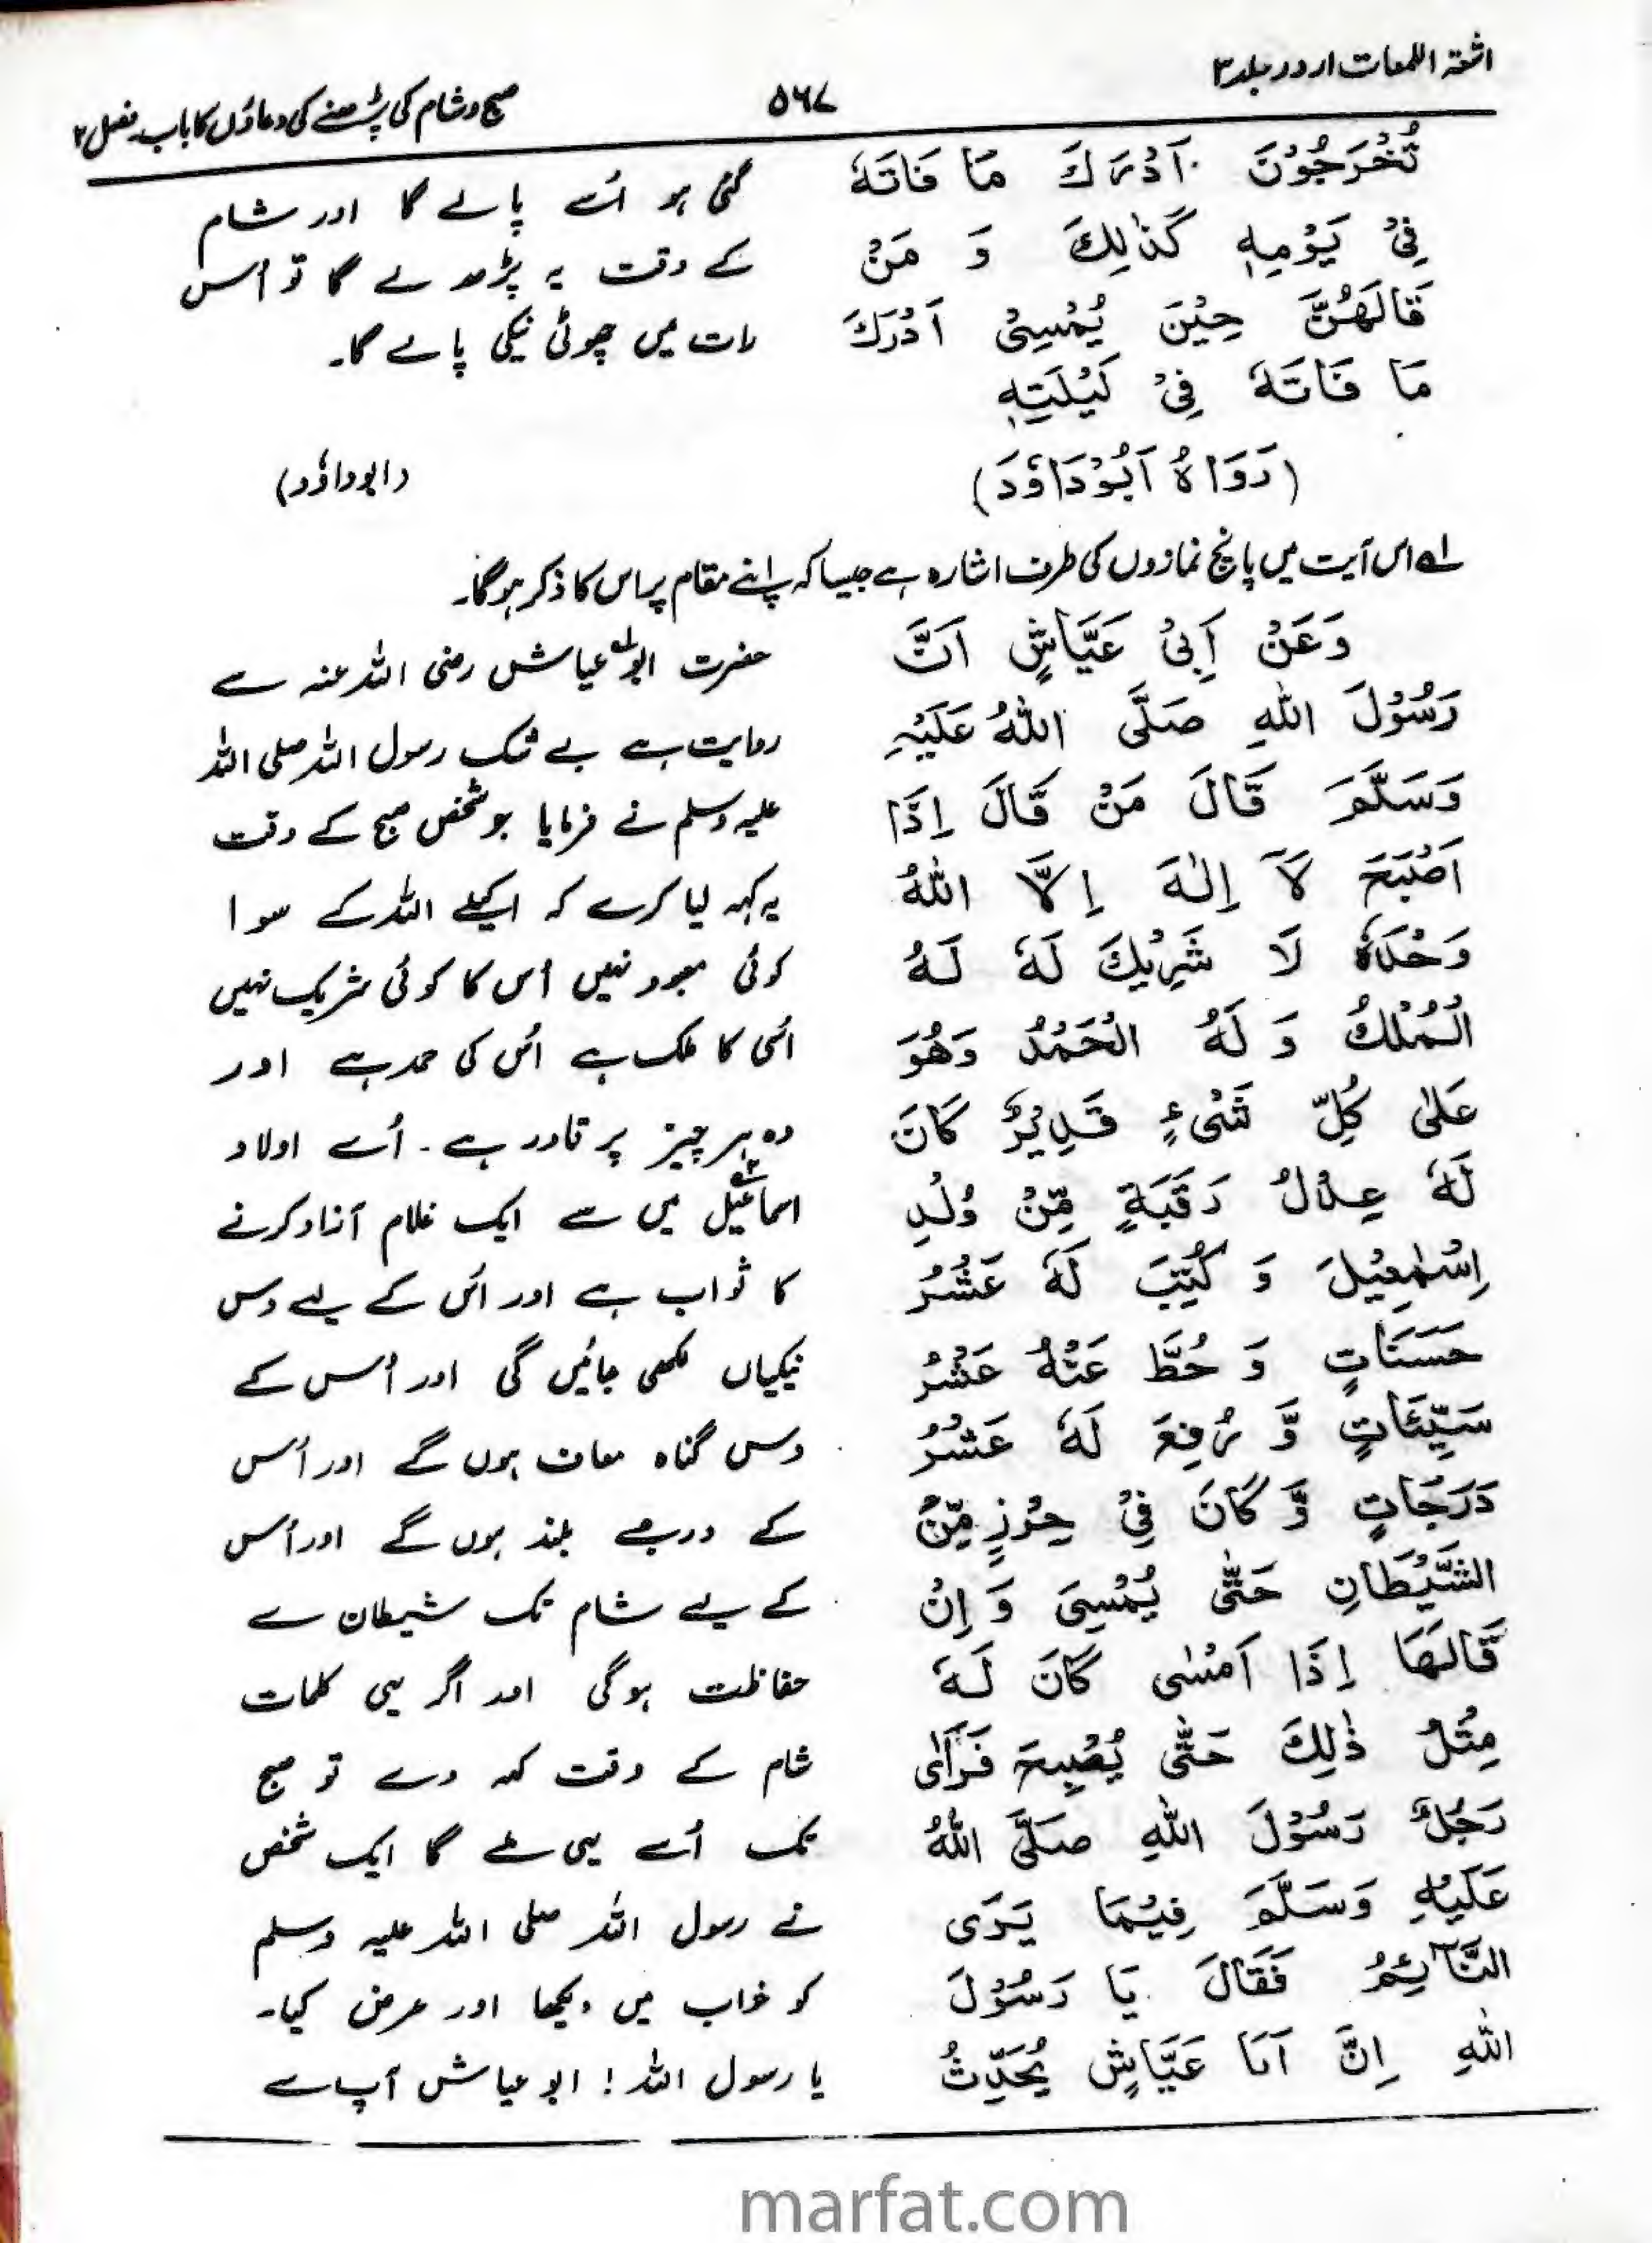 اشعۃ اللمعات اردو جلد ۳
۵۶۷
صبح و شام کی پڑھنے کی دعاؤں کا باب۔ فصل ۲
تُخْرَجُوْنَ اَدْرَكَ مَا فَاتَهٗ
فِیْ يَوْمِهٖ كَذٰلِكَ وَ مَنْ
قَالَهُنَّ حِيْنَ يُمْسِیْ اَدْرَكَ
مَا فَاتَهٗ فِیْ لَيْلَتِهٖ
(رَوَاهُ اَبُوْدَاوٗدَ)
گئی ہو اُسے پالے گا اور شام
کے وقت یہ پڑھ لے گا تو اُس
رات میں چھوٹی نیکی پالے گا۔
(ابوداؤد)
لے اس آیت میں پانچ نمازوں کی طرف اشارہ ہے جیسا کہ اپنے مقام پر اس کا ذکر ہوگا۔
وَعَنْ اَبِیْ عَيَّاشٍ اَنَّ
رَسُوْلَ اللهِ صَلَّی اللهُ عَلَيْهِ
وَسَلَّمَ قَالَ مَنْ قَالَ اِذَا
اَصْبَحَ لَآ اِلٰهَ اِلَّا اللهُ
وَحْدَهٗ لَا شَرِيْكَ لَهٗ لَهُ
الْمُلْكُ وَ لَهُ الْحَمْدُ وَهُوَ
عَلٰی كُلِّ شَیْءٍ قَدِيْرٌ كَانَ
لَهٗ عِدْلُ رَقَبَةٍ مِّنْ وُلْدِ
اِسْمٰعِيْلَ وَ كُتِبَ لَهٗ عَشْرُ
حَسَنَاتٍ وَ حُطَّ عَنْهُ عَشْرُ
سَيِّئَاتٍ وَّ رُفِعَ لَهٗ عَشْرُ
دَرَجَاتٍ وَّ كَانَ فِیْ حِرْزٍ مِّنَ
الشَّيْطَانِ حَتّٰی يُمْسِیَ وَ اِنْ
قَالَهَا اِذَا اَمْسٰی كَانَ لَهٗ
مِثْلُ ذٰلِكَ حَتّٰی يُصْبِحَ فَرَاٰی
رَجُلٌ رَسُوْلَ اللهِ صَلَّی اللهُ
عَلَيْهِ وَسَلَّمَ فِيْمَا يَرَی
النَّآئِمُ فَقَالَ يَا رَسُوْلَ
اللهِ اِنَّ اَبَا عَيَّاشٍ يُحَدِّثُ
حضرت ابو عیاش رضی اللہ عنہ سے
روایت ہے بے شک رسول اللہ صلی اللہ
علیہ وسلم نے فرمایا جو شخص صبح کے وقت
یہ کہہ لیا کرے کہ اکیلے اللہ کے سوا
کوئی معبود نہیں اُس کا کوئی شریک نہیں
اُسی کا ملک ہے اُس کی حمد ہے اور
وہ ہر چیز پر قادر ہے۔ اُسے اولاد
اسماعیل میں سے ایک غلام آزاد کرنے
کا ثواب ہے اور اُس کے لیے دس
نیکیاں لکھی جائیں گی اور اُس کے
دس گناہ معاف ہوں گے اور اُس
کے درجے بلند ہوں گے اور اُس
کے لیے شام تک شیطان سے
حفاظت ہوگی اور اگر یہی کلمات
شام کے وقت کہہ دے تو صبح
تک اُسے یہی ملے گا ایک شخص
نے رسول اللہ صلی اللہ علیہ وسلم
کو خواب میں دیکھا اور عرض کیا۔
یا رسول اللہ! ابو عیاش آپ سے
marfat.com